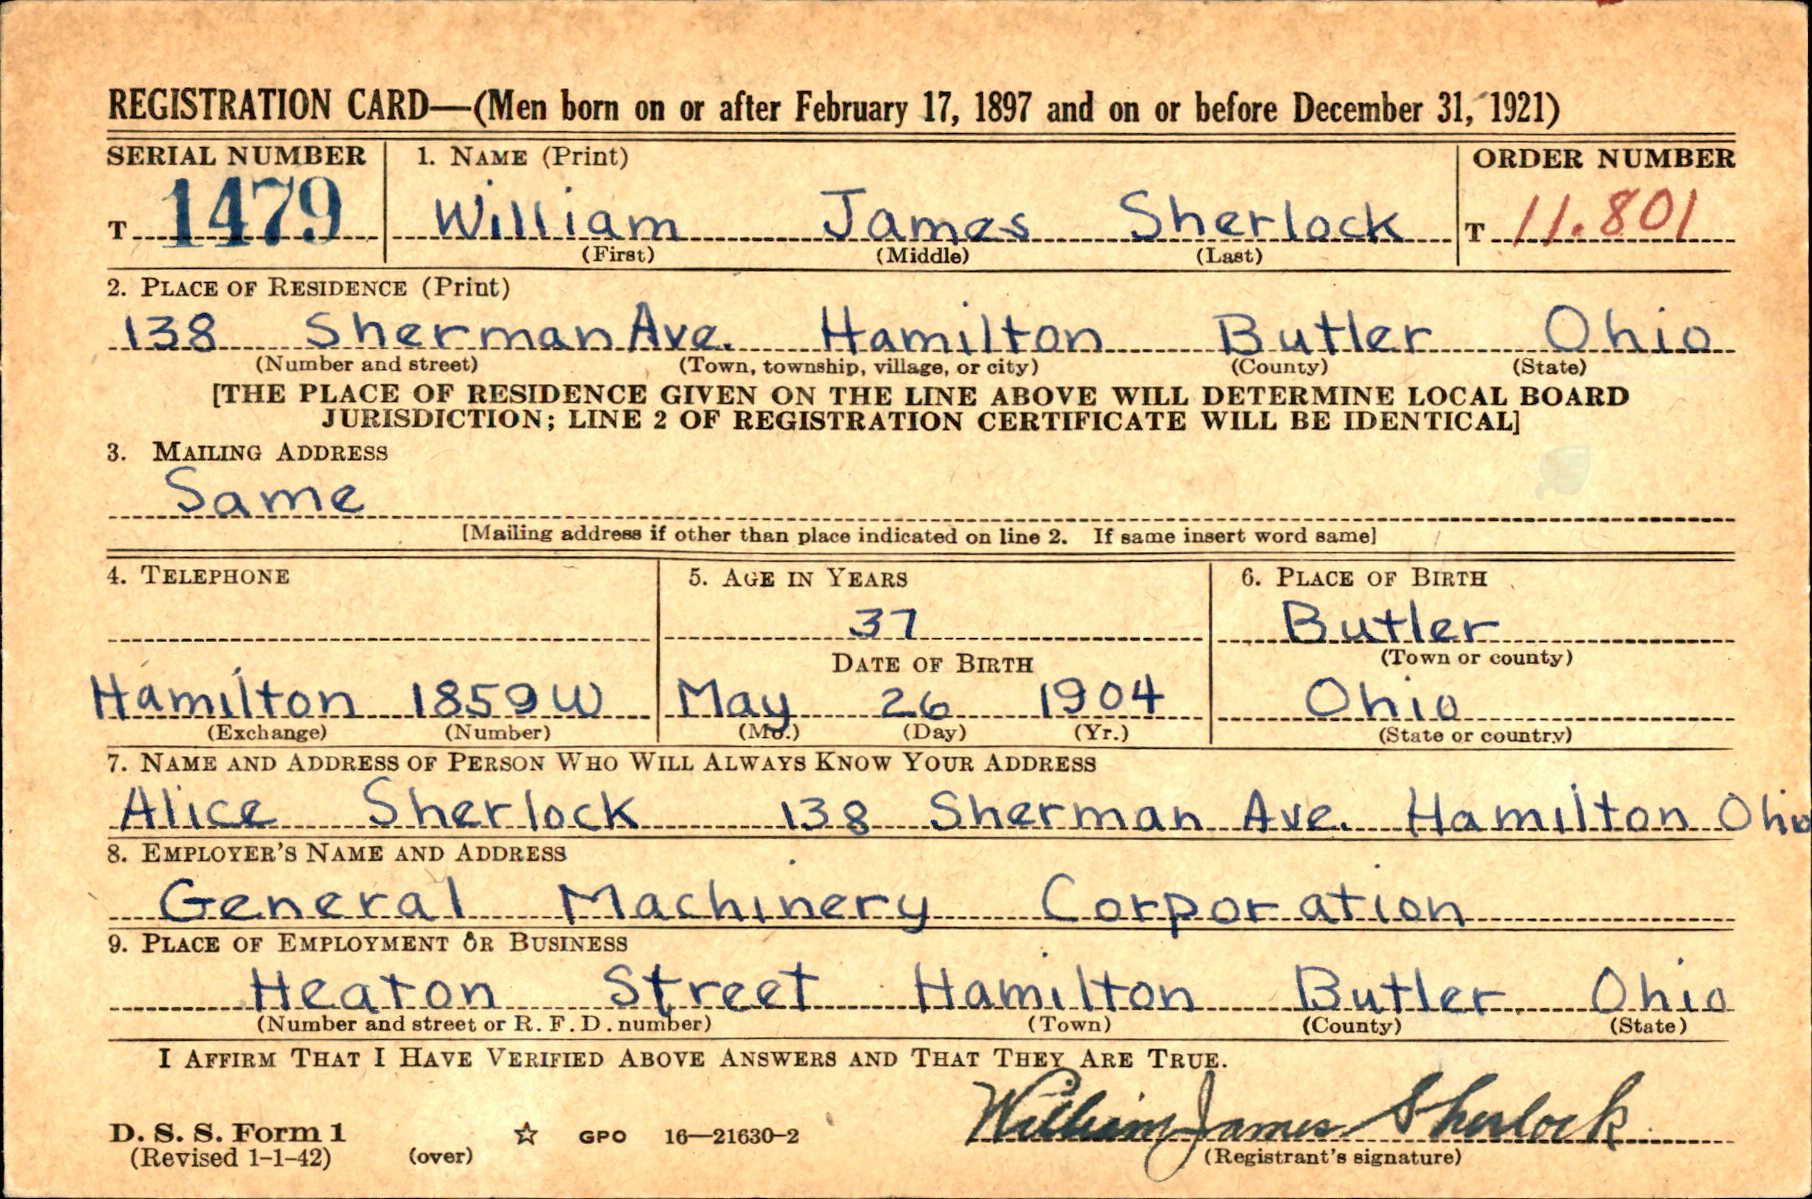 REGISTRATION CARD—(Men born on or after February 17, 1897 and on or before December 31, 1921)
SERIAL NUMBER 1. NAME (Print) ORDER NUMBER
T 1479 William James Sherlock T 11.801
(First) (Middle) (Last)
2. PLACE OF RESIDENCE (Print)
138 Sherman Ave. Hamilton Butler Ohio
(Number and street) (Town, township, village, or city) (County) (State)
[THE PLACE OF RESIDENCE GIVEN ON THE LINE ABOVE WILL DETERMINE LOCAL BOARD
JURISDICTION; LINE 2 OF REGISTRATION CERTIFICATE WILL BE IDENTICAL]
3. MAILING ADDRESS
Same
[Mailing address if other than place indicated on line 2. If same insert word same]
4. TELEPHONE 5. AGE IN YEARS 6. PLACE OF BIRTH
37 Butler
DATE OF BIRTH (Town or county)
Hamilton 1859W May 26 1904 Ohio
(Exchange) (Number) (Mo.) (Day) (Yr.) (State or country)
7. NAME AND ADDRESS OF PERSON WHO WILL ALWAYS KNOW YOUR ADDRESS
Alice Sherlock 138 Sherman Ave. Hamilton Ohio
8. EMPLOYER'S NAME AND ADDRESS
General Machinery Corporation
9. PLACE OF EMPLOYMENT OR BUSINESS
Heaton Street Hamilton Butler Ohio
(Number and street or R. F. D. number) (Town) (County) (State)
I AFFIRM THAT I HAVE VERIFIED ABOVE ANSWERS AND THAT THEY ARE TRUE.
William James Sherlock
D. S. S. Form 1 GPO 16—21630-2
(Revised 1-1-42) (over) (Registrant's signature)